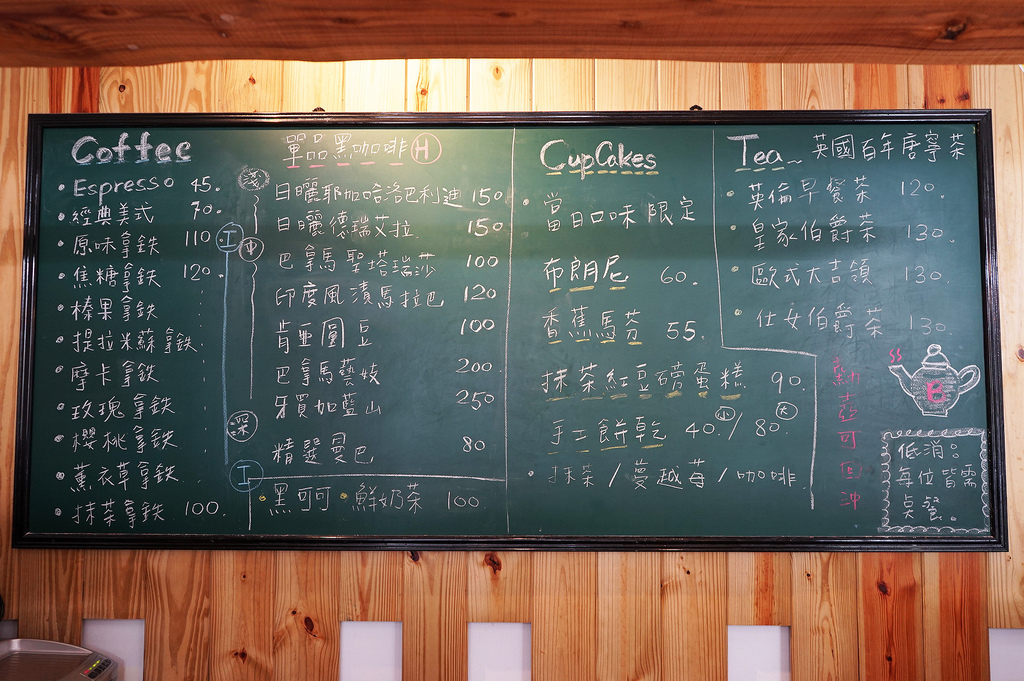 Coffee
Espresso 45.
經典美式 70.
原味拿鉄 110
焦糖拿鉄 120.
榛果拿鉄
提拉米蘇拿鉄
摩卡拿鉄
玫瑰拿鉄
櫻桃拿鉄
薰衣草拿鉄
抹茶拿鉄 100.
單品黑咖啡 H
淺
日曬耶加哈洛巴利迪 150
日曬德瑞艾拉 150
工 中
巴拿馬聖塔瑞莎 100
印度風漬馬拉巴 120
肯亞圓豆 100
巴拿馬藝妓 200
牙買加藍山 250
深
精選曼巴 80
工
黑可可 鮮奶茶 100
CupCakes
當日口味限定
布朗尼 60.
香蕉馬芬 55.
抹茶紅豆磅蛋糕 90.
手工餅乾 40.小/80.大
抹茶/蔓越莓/咖啡
Tea~ 英國百年唐寧茶
英倫早餐茶 120.
皇家伯爵茶 130.
歐式大吉嶺 130.
仕女伯爵茶 130.
熱壺可回沖
低消:
每位皆需
桌餐。